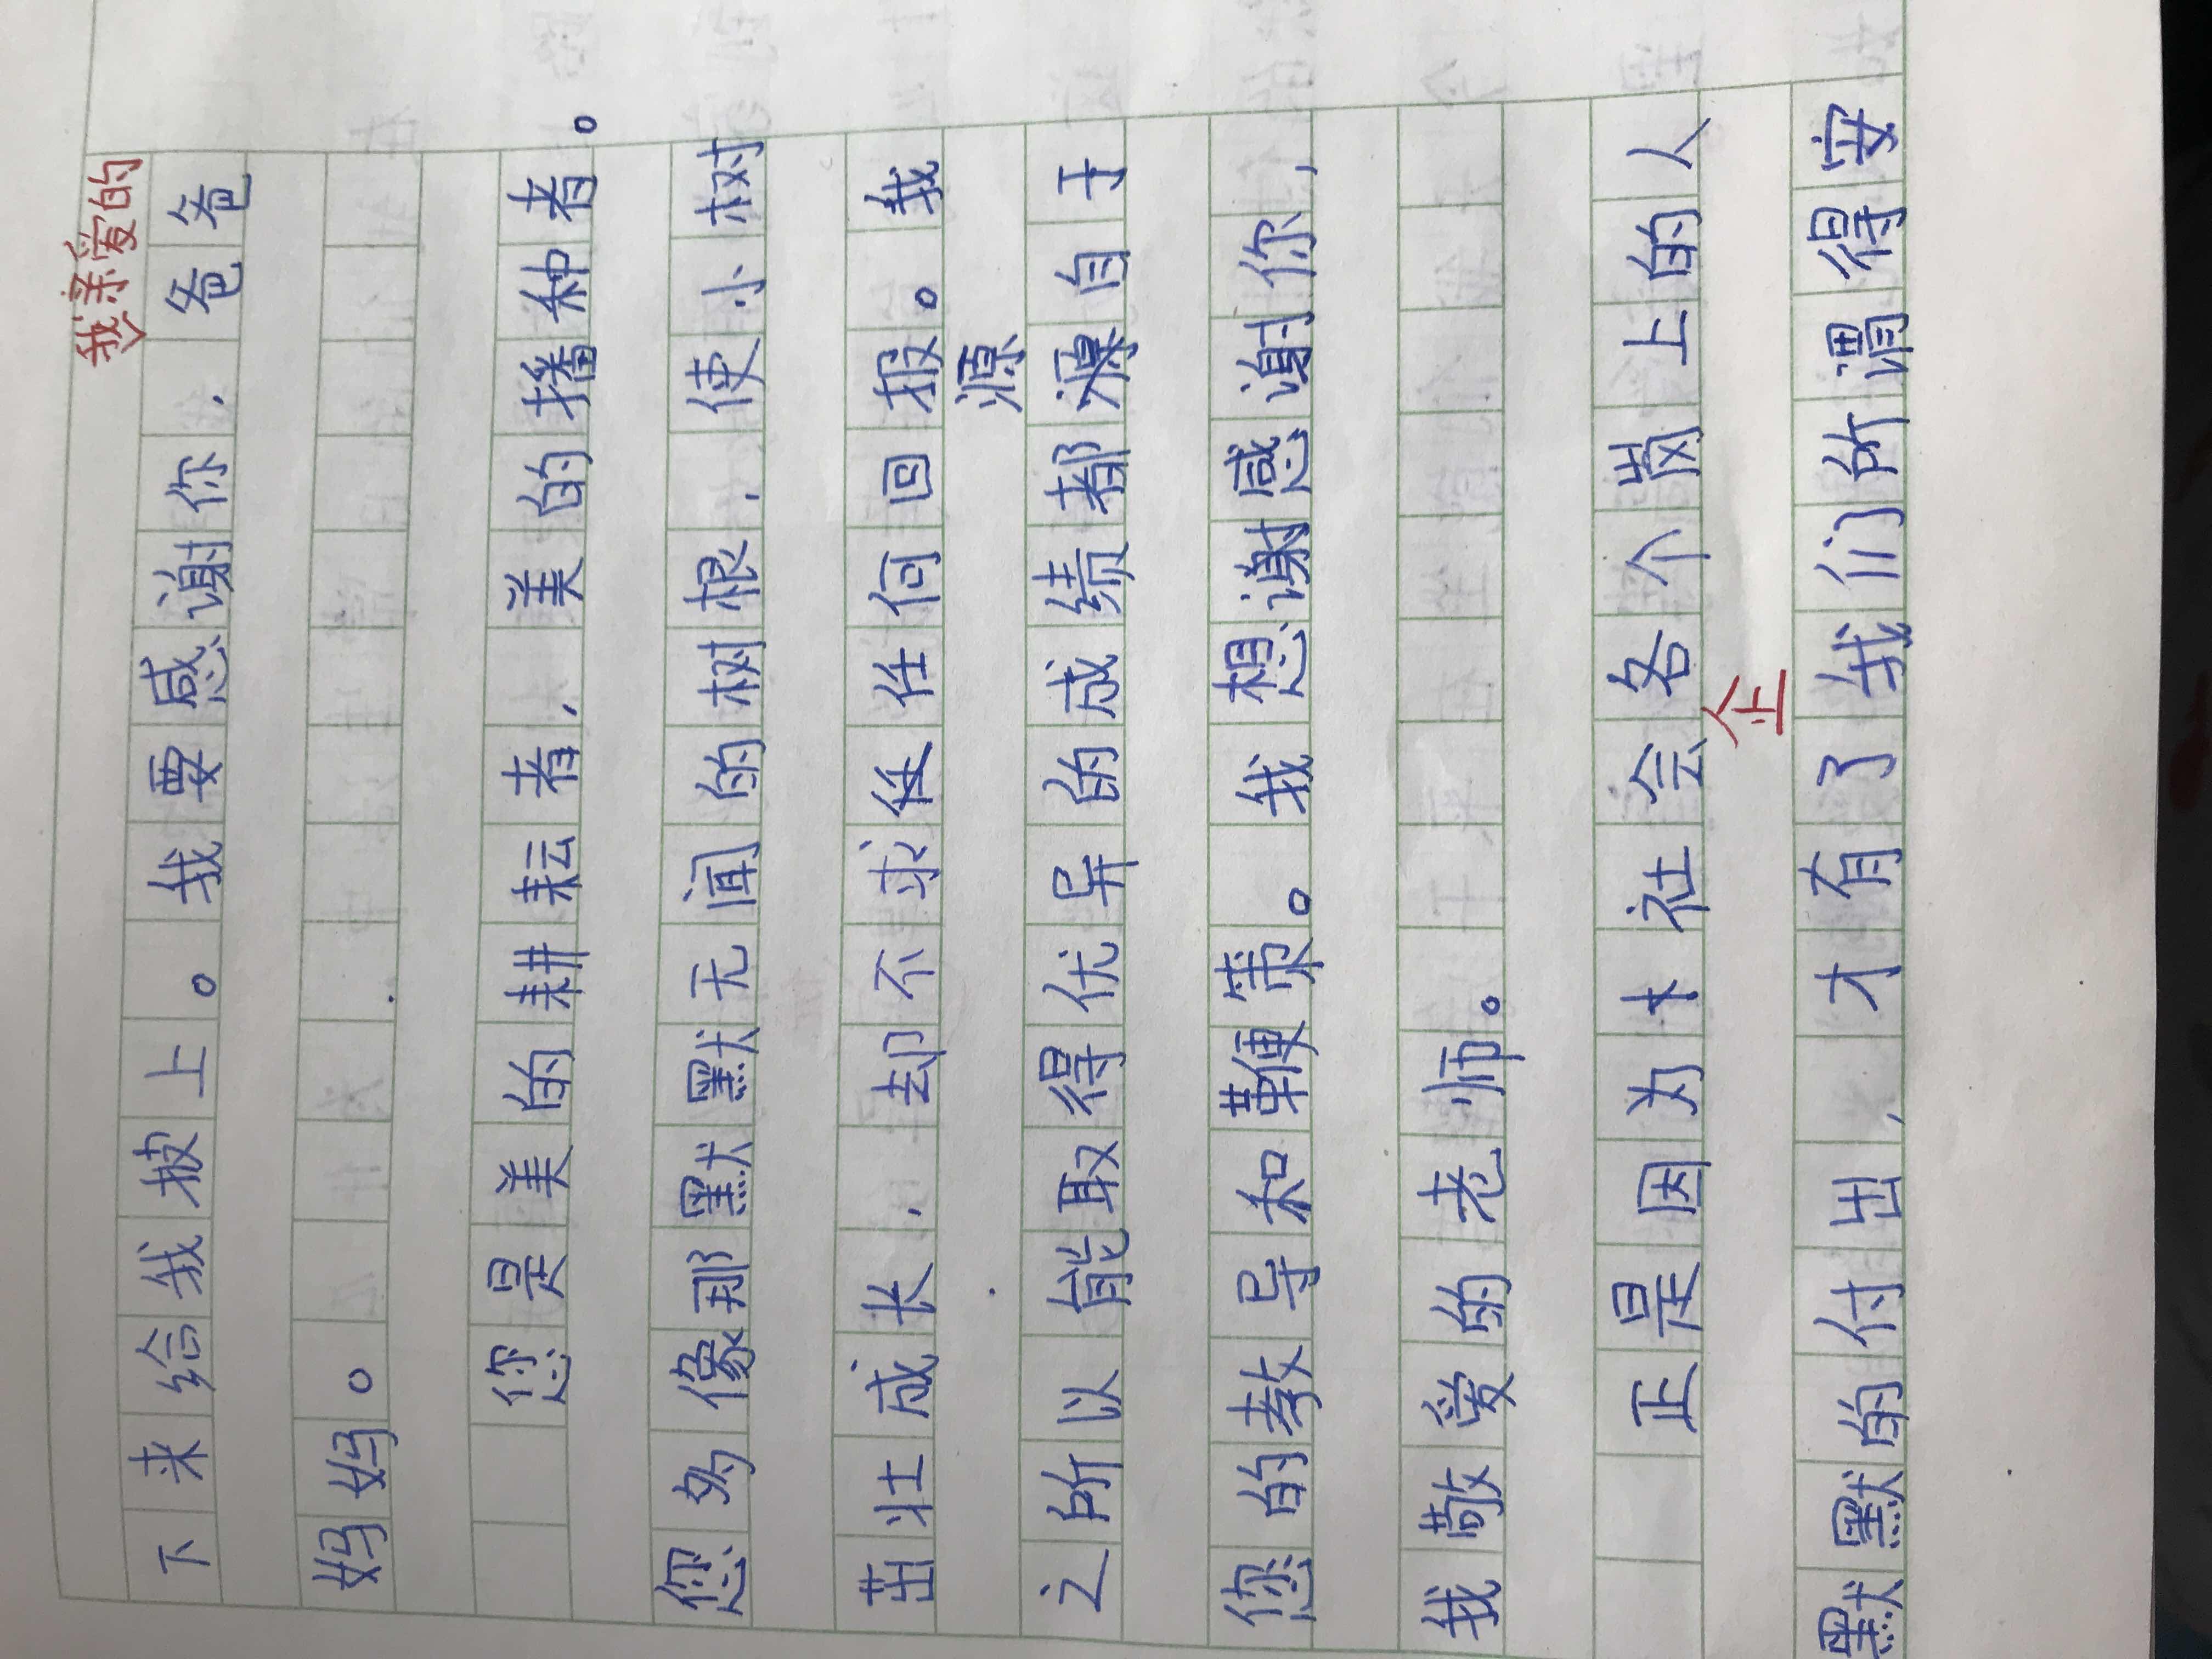 我亲爱的
下来给我披上。我要感谢你，爸爸
妈妈。
您是美的耕耘者，美的播种者。
您多像那默默无闻的树根，使小树
茁壮成长，却不求任何回报。我
源
之所以能取得优异的成绩都自于
您的教导和鞭策。我想谢感谢你，
我敬爱的老师。
正是因为社会各个岗上的人
企
默默的付出，才有了我们所谓得安